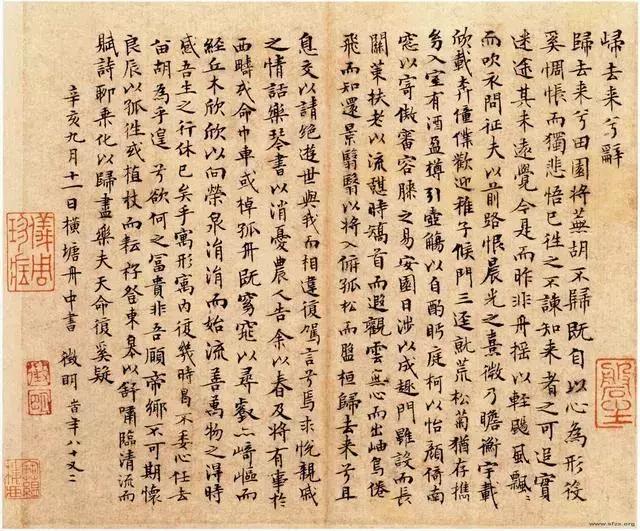 歸去来兮辭
歸去来兮田園將蕪胡不歸既自以心為形役
奚惆悵而獨悲悟已往之不諫知来者之可追實
迷途其未遠覺今是而昨非舟摇以輕颺風飄〻
而吹衣問征夫以前路恨晨光之熹微乃瞻衡宇載
欣載奔僮僕歡迎稚子候門三逕就荒松菊猶存攜
幼入室有酒盈樽引壺觴以自酌眄庭柯以怡顔倚南
窓以寄傲審容膝之易安園日涉以成趣門雖設而長
關策扶老以流憩時矯首而遐觀雲無心而出岫鳥倦
飛而知還景翳翳以將入孤松而盤桓歸去来兮且
息交以請絶遊世與我而相違復駕言兮焉求悦親戚
之情話樂琴書以消憂農人告余以春及將有事於
西疇或命巾車或棹孤舟既窈窕以尋壑亦崎嶇而
經丘木欣欣以向榮泉涓涓而始流善萬物之得時
感吾生之行休已矣乎寓形寓内復幾時曷不委心任去
留胡為乎遑兮欲何之富貴非吾願帝鄉不可期懷
良辰以孤往或植杖而耘耔登東皋以舒嘯臨清流而
賦詩聊乘化以歸盡樂夫天命復奚疑
辛亥九月十一日横塘舟中書 徵明 時年八十又二
徵明
www.sfzs.org